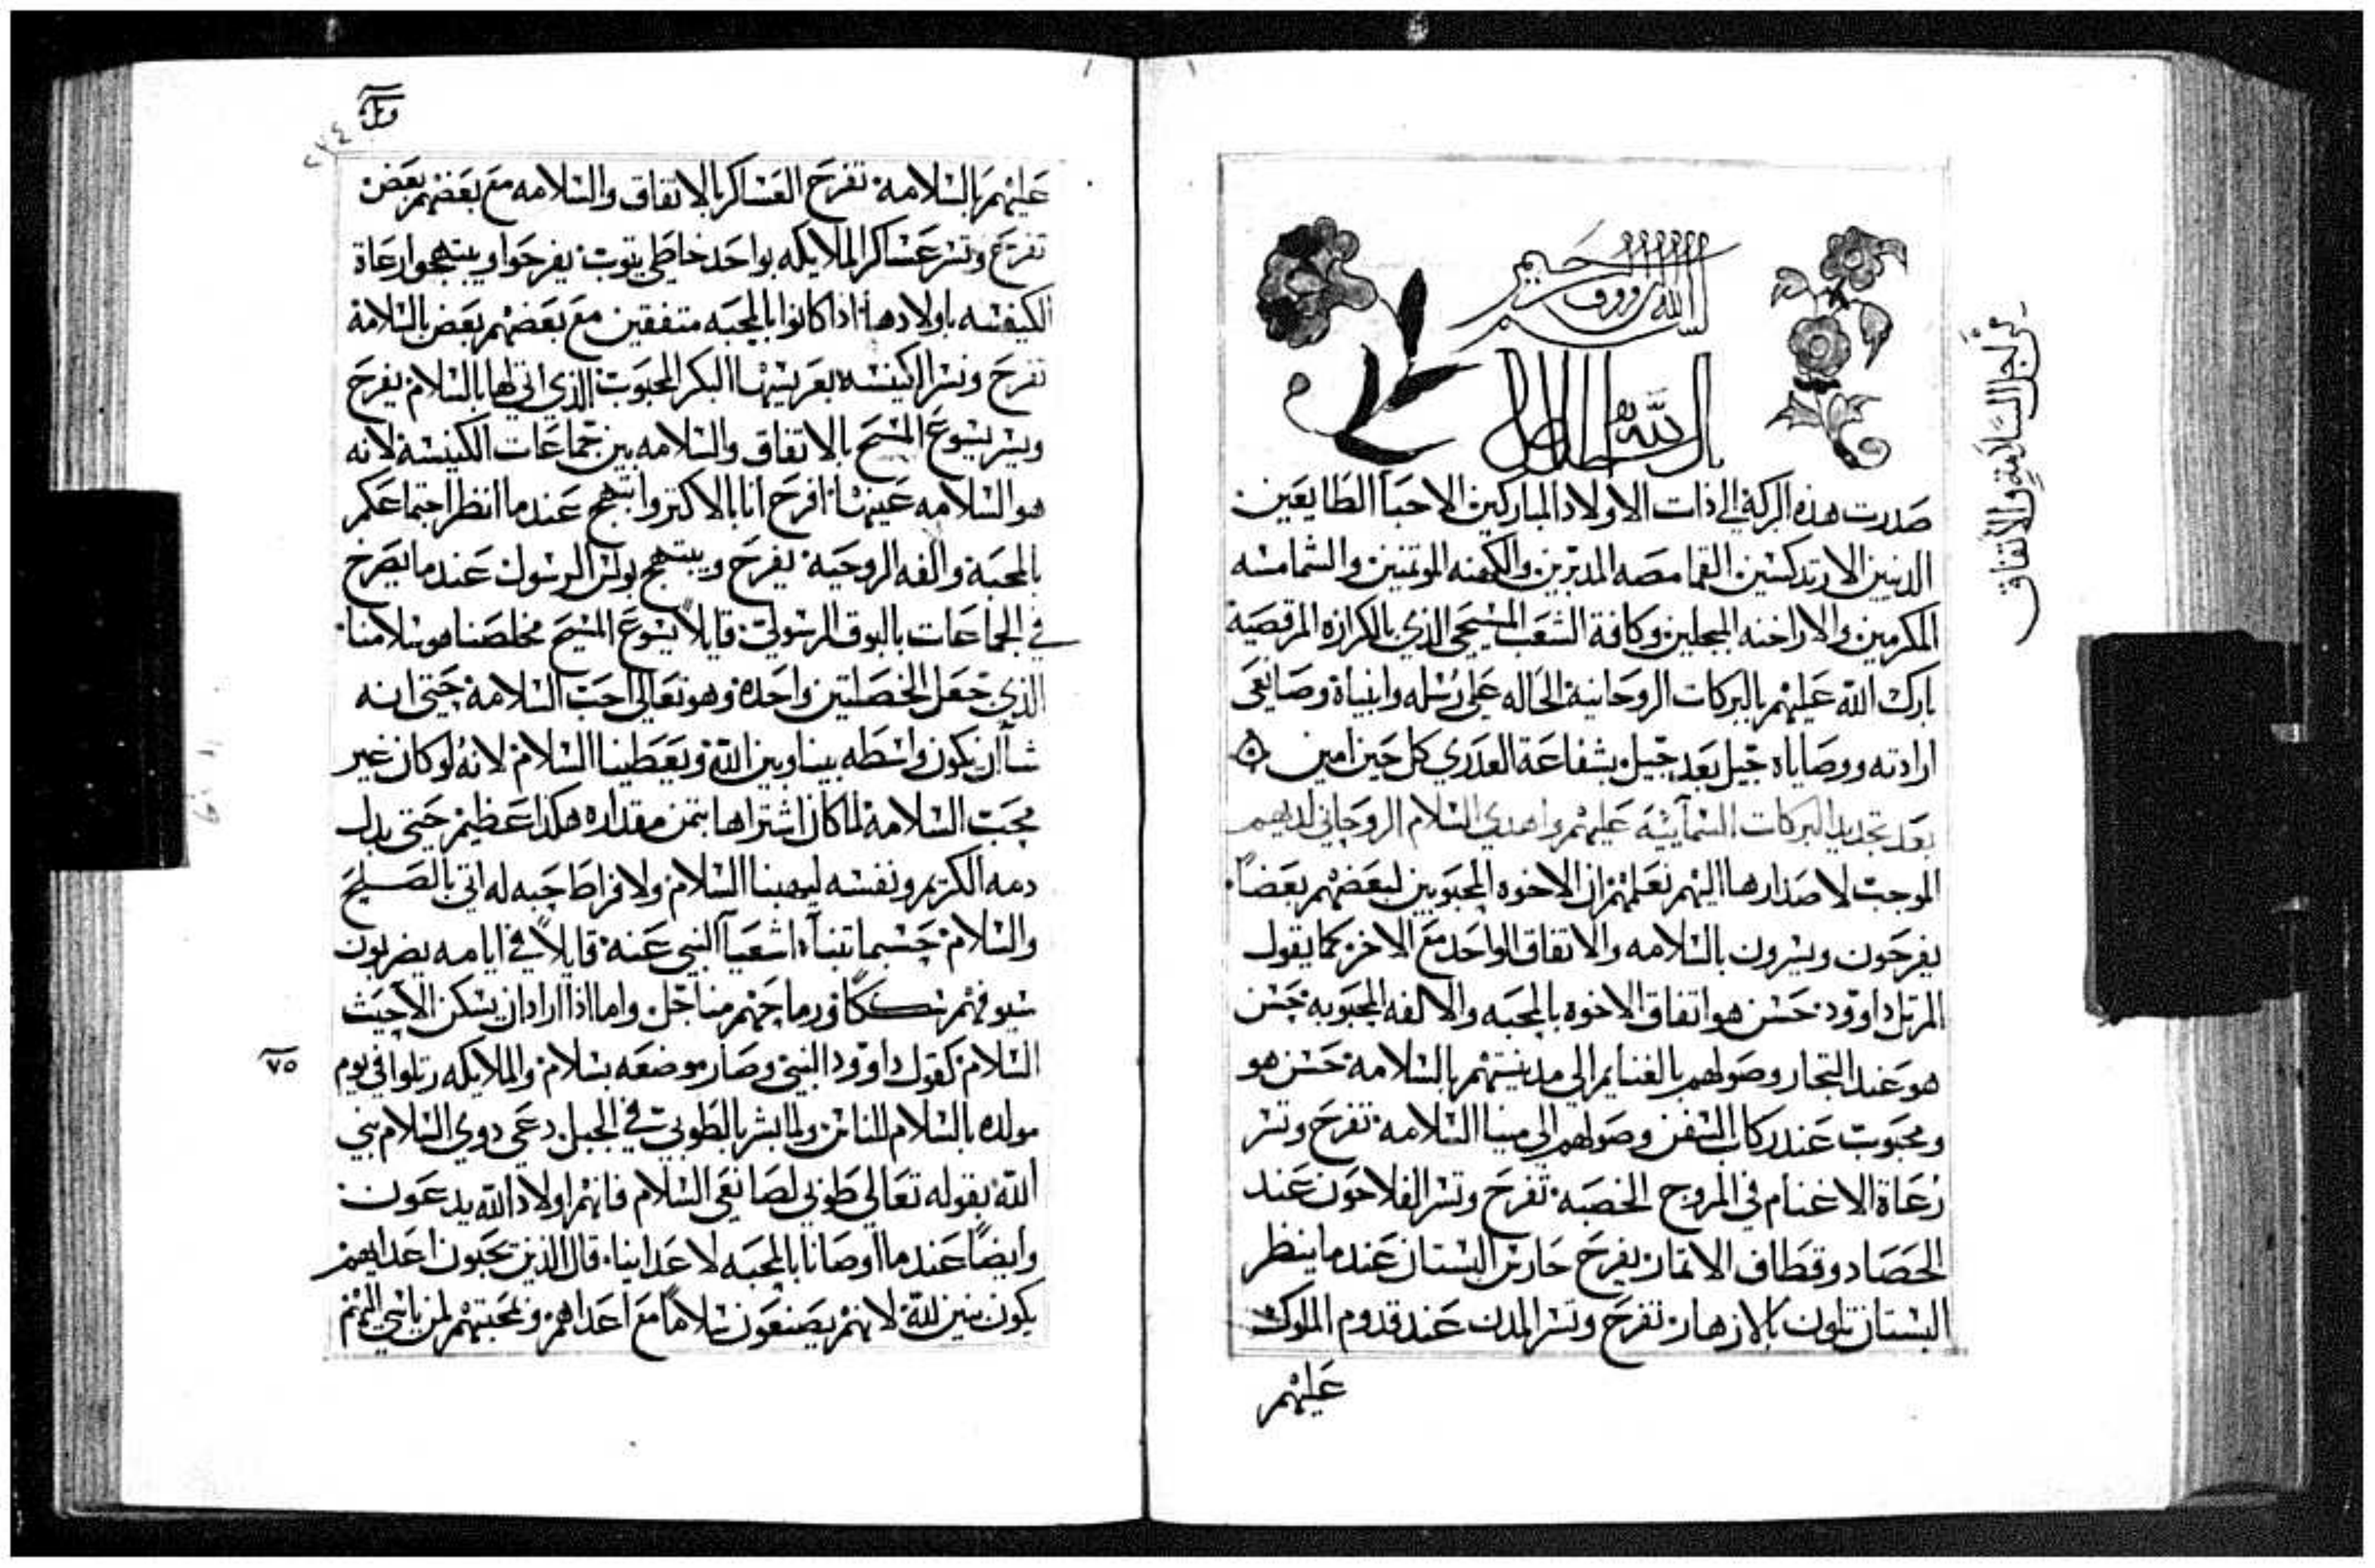 بسم الله الرووف الرحيم
صدرت هذه البركة الي ذات الاولاد المباركين الاحبا الطايعين.
الدينين الارتدكسين القمامصه المدبرين والكهنه الموتمنين والشمامسه
المكرمين والاراخنه المبجلين وكافة الشعب المسيحي الذي بالكرازه المرقصية
بارك الله عليهم بالبركات الروحانية الحاله علي رسله وانبياه وصانعي
ارادته ووصاياه جيل بعد جيل بشفاعة العدري كل حين امين
بعد تجديد البركات السمآيئية عليهم واهدي السلام الروحاني لديهم
الموجب لاصدارها اليهم نعلمهم ان الاخوه المحبوبين لبعضهم بعضاً.
يفرحون ويسرون بالسلامه والاتفاق الواحد مع الاخر كما يقول
المرتل داوود حسن هو اتفاق الاخوه بالمحبه والالفه المحبوبه حسن
هو عند التجار وصولهم بالغنايم الي مدينتهم بالسلامه حسن هو
ومحبوب عند ركاب السفن وصولهم الي مينا السلامه تفرح وتسر
رعاة الاغنام في المروج الخصبه تفرح وتسر الفلاحون عند
الحصاد وقطاف الاتمار يفرح حارس البستان عندما ينظر
البستان تلون بالازهار تفرح وتسر المدن عند قدوم الملوك
عليهم
من اجل السلامة والاتفاق
٢٢٤
عليهم بالسلامه تفرح العساكر بالاتفاق والسلامه مع بعضهم بعض
تفرح وتسر عساكر الملايكه بواحد خاطي يتوب يفرحوا ويبتهجوا رعاة
الكنيسه باولادها اذا كانوا بالمحبه متفقين مع بعضهم بعض بالسلامة
تفرح وتسر الكنيسه بعريسها البكر المحبوب الذي اتي لها بالسلام يفرح
ويسر يسوع المسيح بالاتفاق والسلامه بين جماعات الكنيسة لانه
هو السلامه عينها افرح انا بالاكتر وابتهج عندما انظر اجتماعكم
بالمحبة والفه الروحيه يفرح ويبتهج بولس الرسول عندما يصرخ
في الجماعات بالبوق الرسولي قايلاً يسوع المسيح مخلصنا هو سلامنا
الذي جعل الخصلتين واحده وهو تعالي احب السلامه حتي انه
شاأن يكون واسطه بيننا وبين الله ويعطينا السلام لانهُ لو كان غير
محب السلامه لما كان اشتراها بتمن مقداره هكدا عظيم حتي بدل
دمه الكريم ونفسه ليهبنا السلام ولافراط حبه له اتي بالصليح
والسلام حسبما تنبأ اشعيآ النبي عنه قايلاً في ايامه يضربون
سيوفهم سككاً ورماحهم مناجل واما اذا اراد ان يسكن الاحيث
السلام كقول داوود النبي وصار موضعه بسلام والملايكه رتلوا في يوم
٧٥
مولده بالسلام للناس ولما بشر بالطوبي في الجبل دعي دوي السلام بني
الله بقوله تعالي طوبي لصانعي السلام فانهم اولاد الله يدعون.
وايضاً عندما اوصانا بالمحبه لاعداينا قال الذين يحبون اعدايهم
يكون بنين لله لانهم يصنعون سلاماً مع اعداهم وبمحبتهم لمن ياسي اليهم